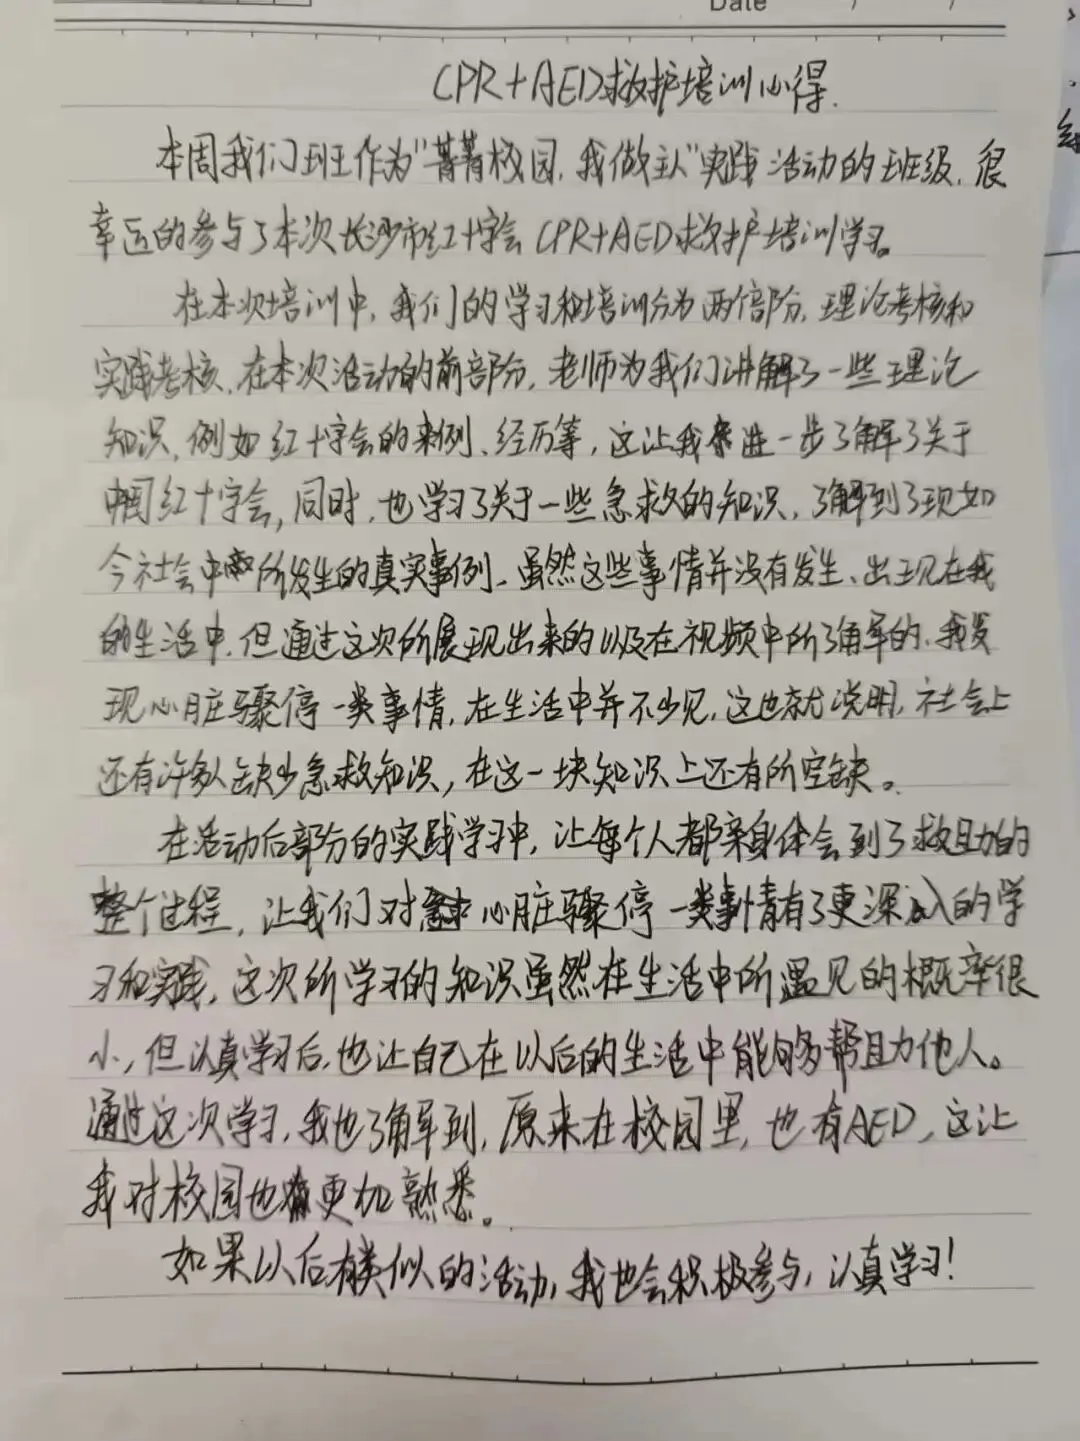 Date / /
CPR+AED救护培训心得.
本周我们班作为"菁菁校园,我做主"实践活动的班级,很
幸运的参与了本次长沙市红十字会CPR+AED救护培训学习。
在本次培训中,我们的学习和培训分为两个部分,理论考核和
实践考核,在本次活动的前部分,老师为我们讲解了一些理论
知识,例如红十字会的来例、经历等,这让我进一步了解了关于
中国红十字会,同时,也学习了关于一些急救的知识,了解到了现如
今社会中所发生的真实事例,虽然这些事情并没有发生、出现在我
的生活中,但通过这次所展现出来的以及在视频中所了解的,我发
现心脏骤停一类事情,在生活中并不少见,这也就说明,社会上
还有许多人缺少急救知识,在这一块知识上还有所空缺。
在活动后部分的实践学习中,让每个人都亲身体会到了救助的
整个过程,让我们对心脏骤停一类事情有了更深入的学
习和实践,这次所学习的知识虽然在生活中所遇见的概率很
小,但认真学习后,也让自己在以后的生活中能够帮助他人。
通过这次学习,我也了解到,原来在校园里,也有AED,这让
我对校园也更加熟悉。
如果以后有类似的活动,我也会积极参与,认真学习!